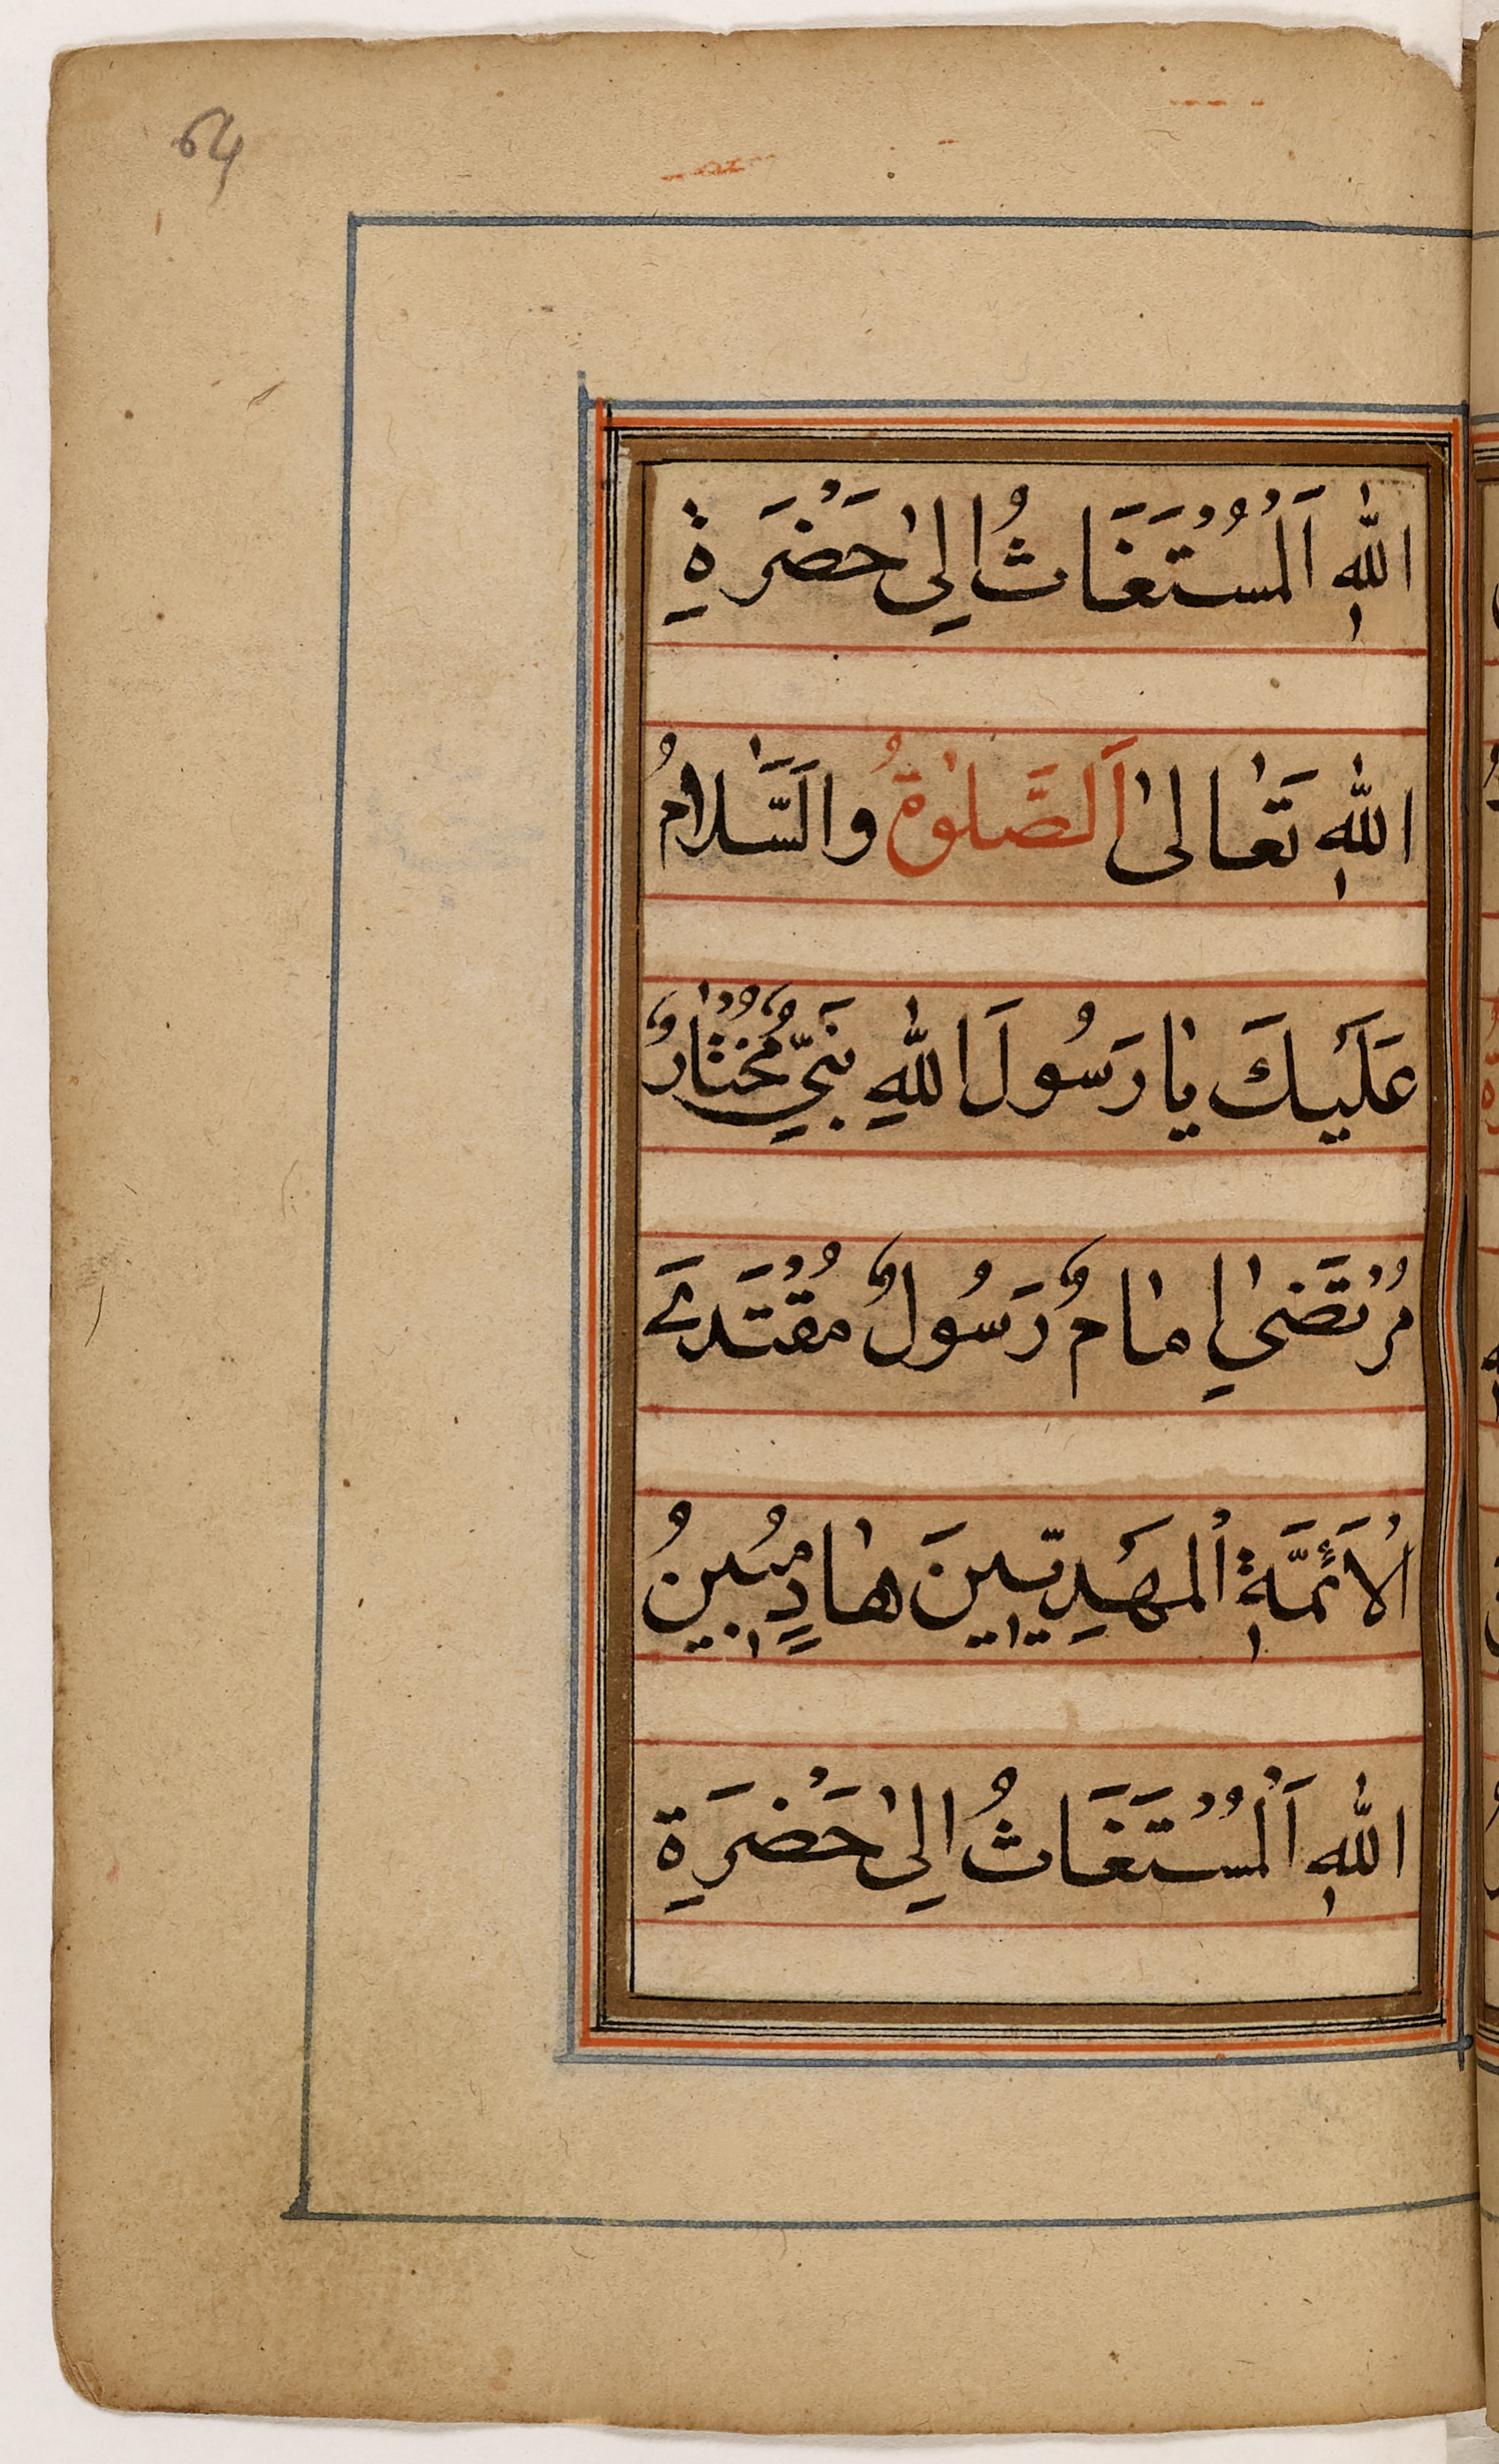 64
اللهِ اَلْمُسْتَغَاثُ اِلىٰ حَضْرَةِ
اللهِ تَعَالىٰ اَلصَّلٰوةُ وَالسَّلَامُ
عَلَيْكَ يَا رَسُولَ اللهِ نَبِيٌّ مُخْتَارٌ
مُرْتَضىٰ اِمَامٌ رَسُولٌ مُقْتَدَے
الْاَئِمَّةِ الْمَهْدِيّٖينَ هَادٍ مُبِينُ
اللهِ اَلْمُسْتَغَاثُ اِلىٰ حَضْرَةِ